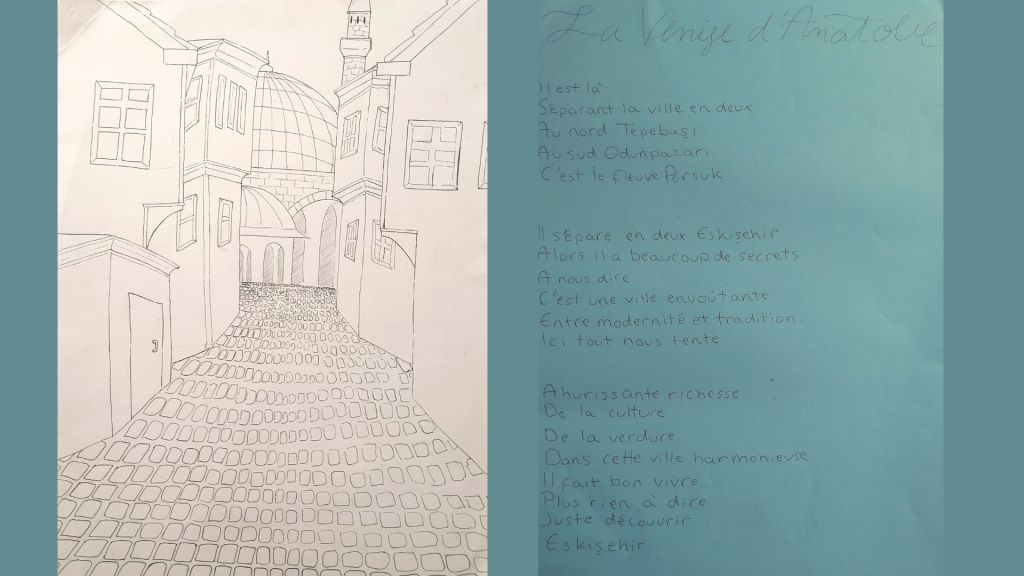 La Venise d'Anatolie
Il est là
Séparant la ville en deux
Au nord Tepebaşı
Au sud Odunpazarı
C'est le fleuve Porsuk
Il sépare en deux Eskişehir
Alors il a beaucoup de secrets
A nous dire
C'est une ville envoûtante
Entre modernité et tradition.
Ici tout nous tente
Ahurissante richesse
De la culture
De la verdure
Dans cette ville harmonieuse
Il fait bon vivre
Plus rien à dire
Juste découvrir
Eskişehir